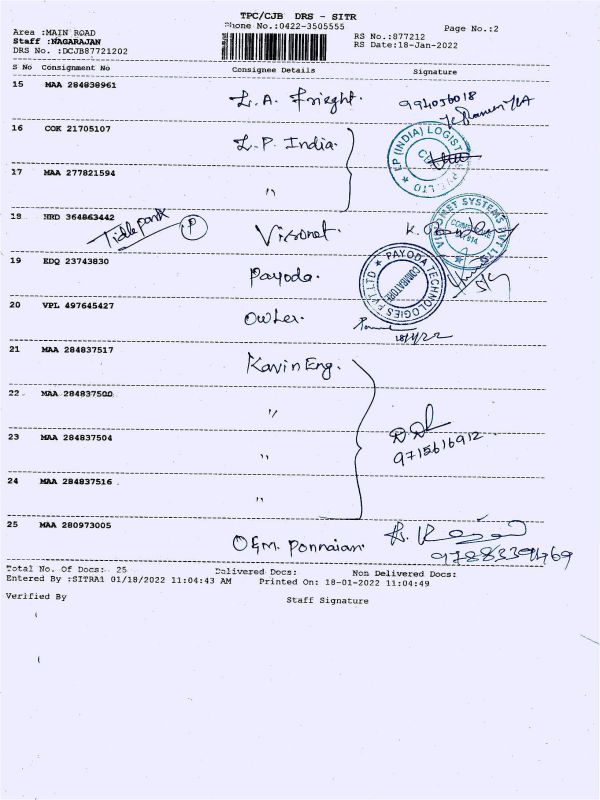 TPC/CJB DRS - SITR
Phone No.:0422-3505555
Page No.:2
Area :MAIN ROAD
RS No.:877212
Staff :NAGARAJAN
RS Date:18-Jan-2022
DRS No. :DCJB87721202
S No Consignment No Consignee Details Signature
15 MAA 284838961
L. A. Frieght. 994056018
16 COK 21705107
L.P. India.
LP (INDIA) LOGIST PVT LTD
17 MAA 277821594
"
18 HRD 364863442
Tidle park P
Visronet.
NET SYSTEMS PVT LTD
19 EDQ 23743830
Payoda.
PAYODA TECHNOLOGIES PVT LTD
COIMBATORE
20 VPL 497645427
Owher.
18/1/22
21 MAA 284837517
Kavin Eng.
22 MAA 284837500
"
23 MAA 284837504
"
9715616912
24 MAA 284837516
"
25 MAA 280973005
O&M. Ponnaian.
Total No. Of Docs: 25 Delivered Docs: Non Delivered Docs:
Entered By :SITRA1 01/18/2022 11:04:43 AM Printed On: 18-01-2022 11:04:49
Verified By
Staff Signature